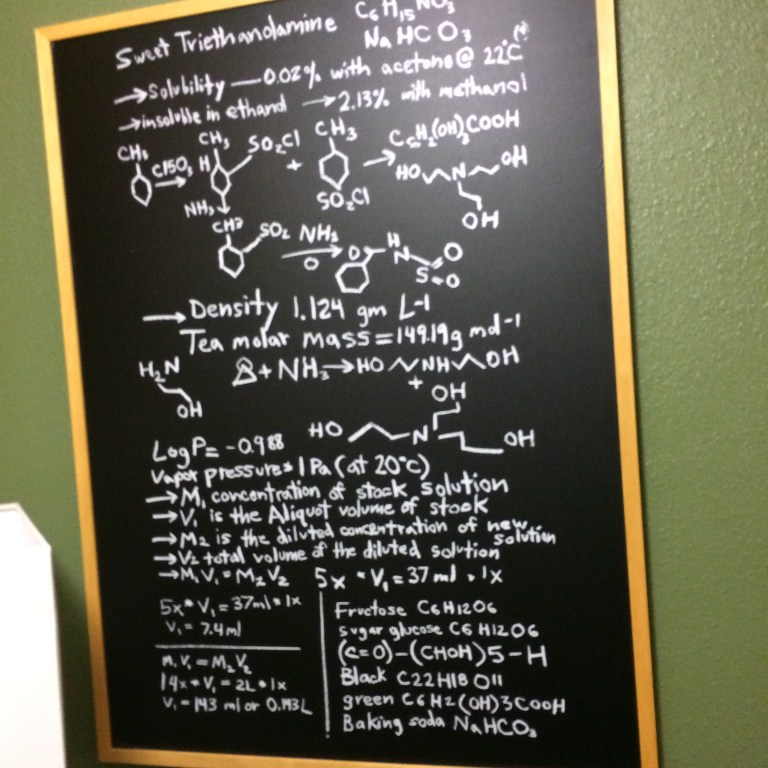 Sweet Triethanolamine C6H15NO3
NaHCO3
→Solubility — 0.02% with acetone @ 22°C
→insoluble in ethanol →2.13% with methanol
CH3 CH3 SO2Cl CH3 C6H2(OH)3COOH
ClSO3H + → HO N OH
SO2Cl
NH3 OH
CH3 SO2 NH2 H
O O N O
S O
→Density 1.124 gm L-1
Tea molar mass = 149.19g mol-1
H2N + NH3 → HO NH OH
+
OH OH
HO N OH
LogP = -0.988
Vapor pressure = 1 Pa (at 20°C)
→M1 concentration of stock solution
→V1 is the Aliquot volume of stock
→M2 is the diluted concentration of new solution
→V2 total volume of the diluted solution
→M1V1 = M2V2 5x * V1 = 37 ml * 1x
5x * V1 = 37ml * 1x
V1 = 7.4 ml
M1V1 = M2V2
14x * V1 = 2L * 1x
V1 = 143 ml or 0.143L
Fructose C6H12O6
sugar glucose C6H12O6
(C=O)-(CHOH)5-H
Black C22H18O11
green C6H2(OH)3COOH
Baking soda NaHCO3